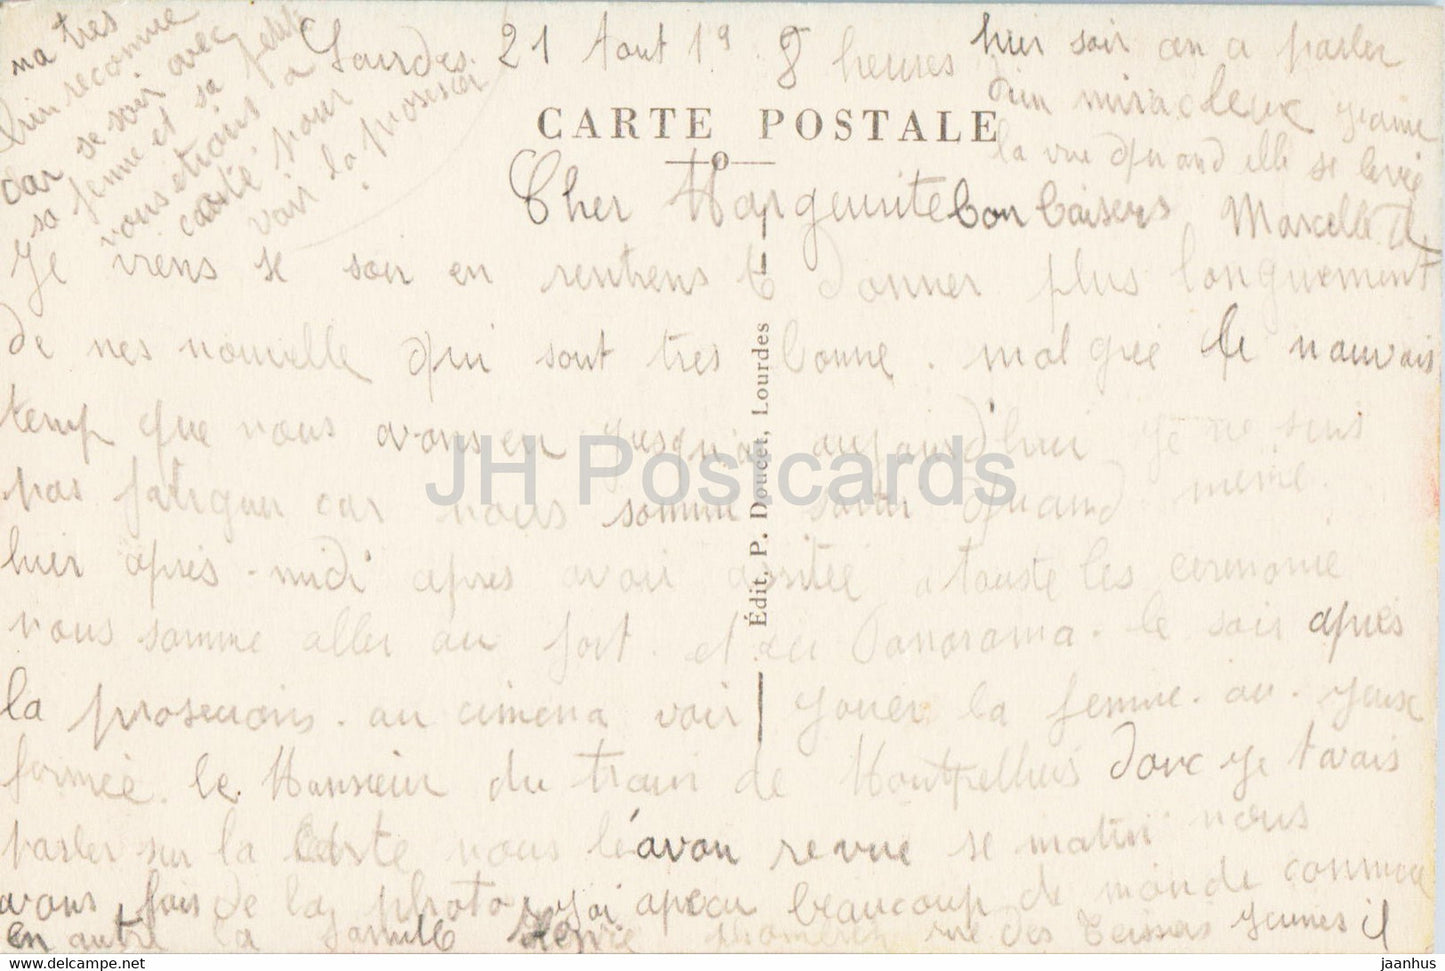 Lourdes 21 Aout 19 8 heures
CARTE POSTALE
Cher Margeurite
Je viens se soir en rentrens donner plus longuement
de nes nouvelle qui sont tres bonne. malgrée le mauvais
temp que nous avons eu jusqu'a aujourd'hui je ne suis
pas fatiguer car nous somme sortir quand meme.
hier apres-midi apres avoir assitée a touste les ceremonie
nous somme aller au fort. et au Panorama. le soir apres
la prosesions. au cinema voir jouer la femme. au. yeux
fermée. le Monsieur du train de Montpelliers donc je t'avais
parler sur la carte nous l'avon revue se matin nous
avons fais de la photo, j'ai apercu beaucoup de monde connue
en autre la famille rue des Teissiers jeunes il
ma tres
bien reconnue
car se soir avec
sa femme et sa petite
nous etrions a
carte pour
voir la prosesion
hier soir on a parler
d'un miracleux jeaune
la vue quand elle se lavée
bon baisers Marcelle
Édit. P. Doucet, Lourdes
JH Postcards
www.delcampe.net
jaanhus